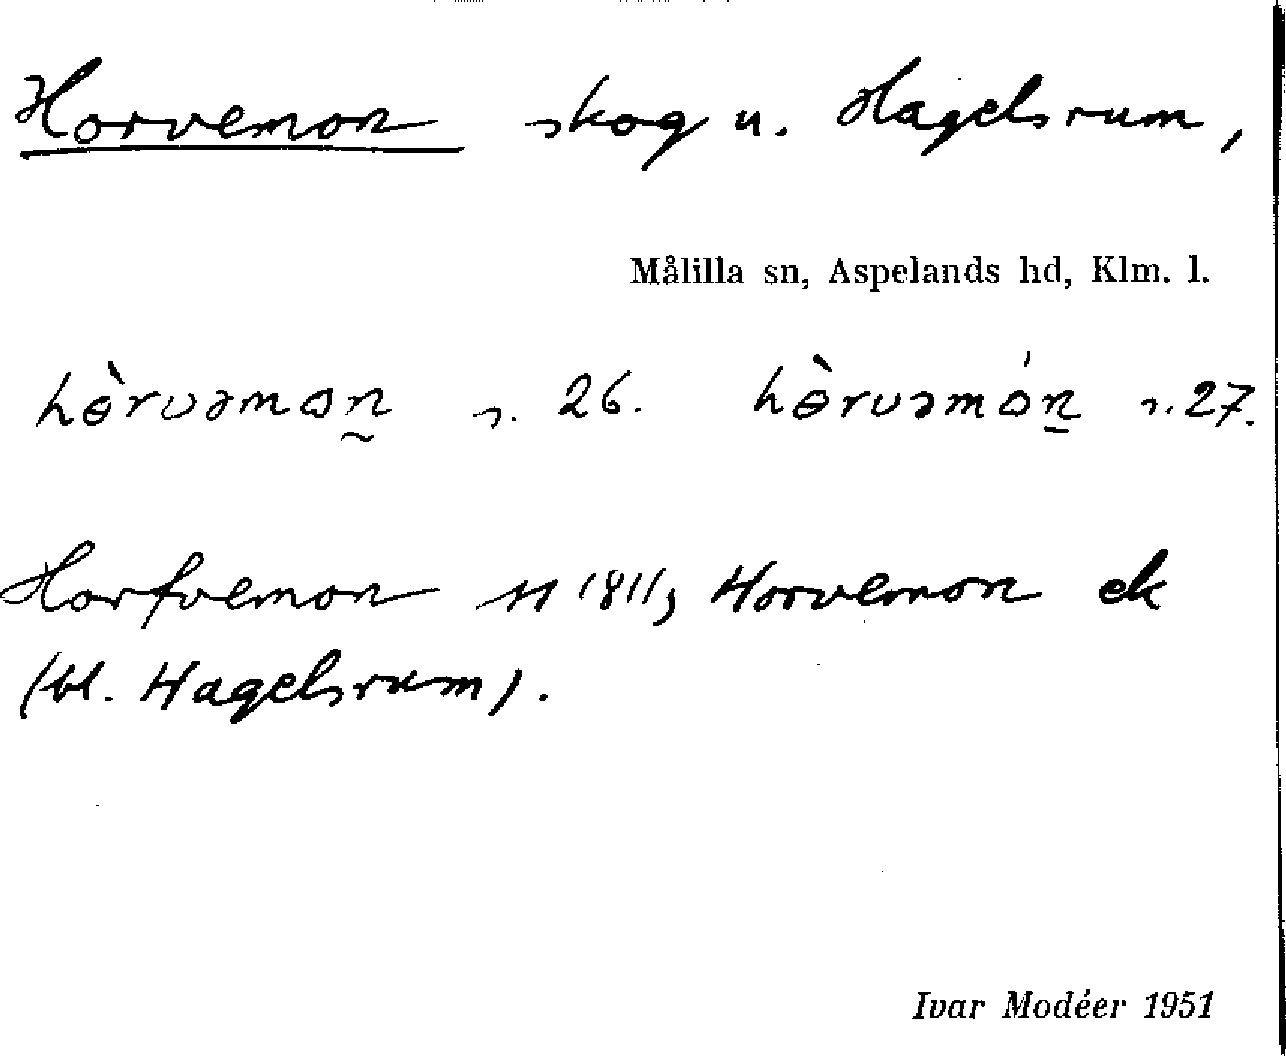 Horvemon skog u. Hagelsrum,
Målilla sn, Aspelands hd, Klm. l.
hɵ̀rvəmon̰ s. 26. hɵ̀rvəmón̠ s. 27.
Horfvemon 1811, Horvemon ek
(bl. Hagelsrum).
Ivar Modéer 1951